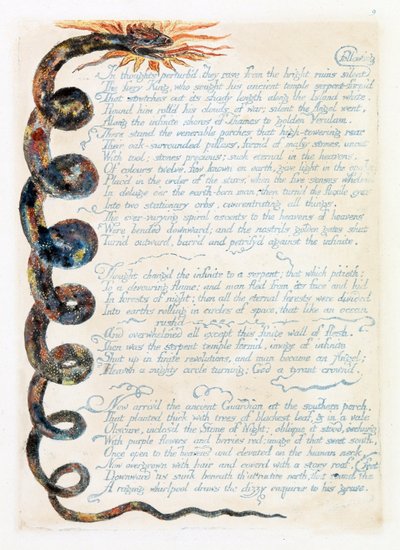 9
following
In thoughts perturb'd, they rose from the bright ruins silent
The fiery King, who sought his ancient temple serpent-form'd
That stretches out its shady length along the Island white.
Round him roll'd his clouds of war; silent the Angel went,
Along the infinite shores of Thames to golden Verulam.
There stand the venerable porches that high-towering rear
Their oak-surrounded pillars, form'd of massy stones, uncut
With tool; stones precious; such eternal in the heavens,
Of colours twelve, few known on earth, give light in the opake,
Plac'd in the order of the stars, when the five senses whelm'd
In deluge o'er the earth-born man; then turn'd the fluxile eyes
Into two stationary orbs, concentrating all things.
The ever-varying spiral ascents to the heavens of heavens
Were bended downward; and the nostrils golden gates shut
Turn'd outward, barr'd and petrify'd against the infinite.
Thought chang'd the infinite to a serpent; that which pitieth:
To a devouring flame; and man fled from its face and hid
In forests of night; then all the eternal forests were divided
Into earths rolling in circles of space, that like an ocean
rush'd
And overwhelmed all except this finite wall of flesh.
Then was the serpent temple form'd, image of infinite
Shut up in finite revolutions, and man became an Angel;
Heaven a mighty circle turning; God a tyrant crown'd.
Now arriv'd the ancient Guardian at the southern porch,
That planted thick with trees of blackest leaf, & in a vale
Obscure, inclos'd the Stone of Night; oblique it stood, o'erhung
With purple flowers and berries red; image of that sweet south,
Once open to the heavens and elevated on the human neck,
Now overgrown with hair and coverd with a stony roof,
feet
Downward 'tis sunk beneath th' attractive north, that round the
A raging whirlpool draws the dizzy enquirer to his grave: